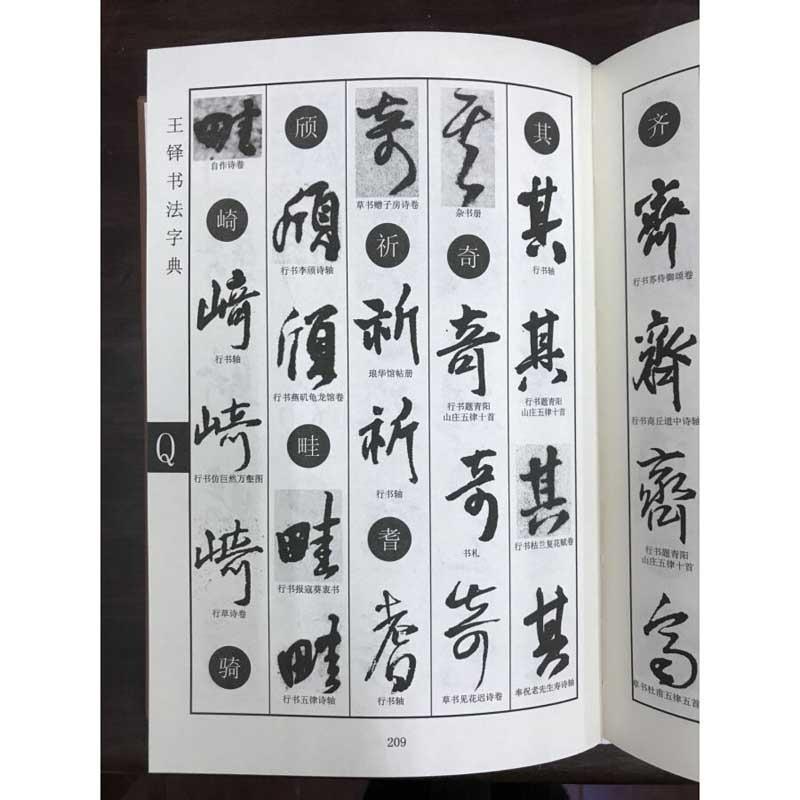 齐
齊
行书苏侍御颂卷
齋
行书商丘道中诗轴
齊
行书题青阳
山庄五律十首
草书杜甫五律五首
王铎书法字典
Q
其
其
行书轴
其
行书题青阳
山庄五律十首
其
行书枯兰复花赋卷
其
奉祝老先生寿诗轴
其
杂书册
奇
奇
行书题青阳
山庄五律十首
奇
书札
奇
草书见花迟诗卷
奇
草书赠子房诗卷
祈
祈
琅华馆帖册
祈
行书轴
耆
耆
行书轴
颀
頎
行书李颀诗轴
頎
行书燕矶龟龙馆卷
畦
畦
行书报寇葵衷书
畦
行书五律诗轴
畦
自作诗卷
崎
崎
行书轴
崎
行书仿巨然万壑图
崎
行草诗卷
骑
209